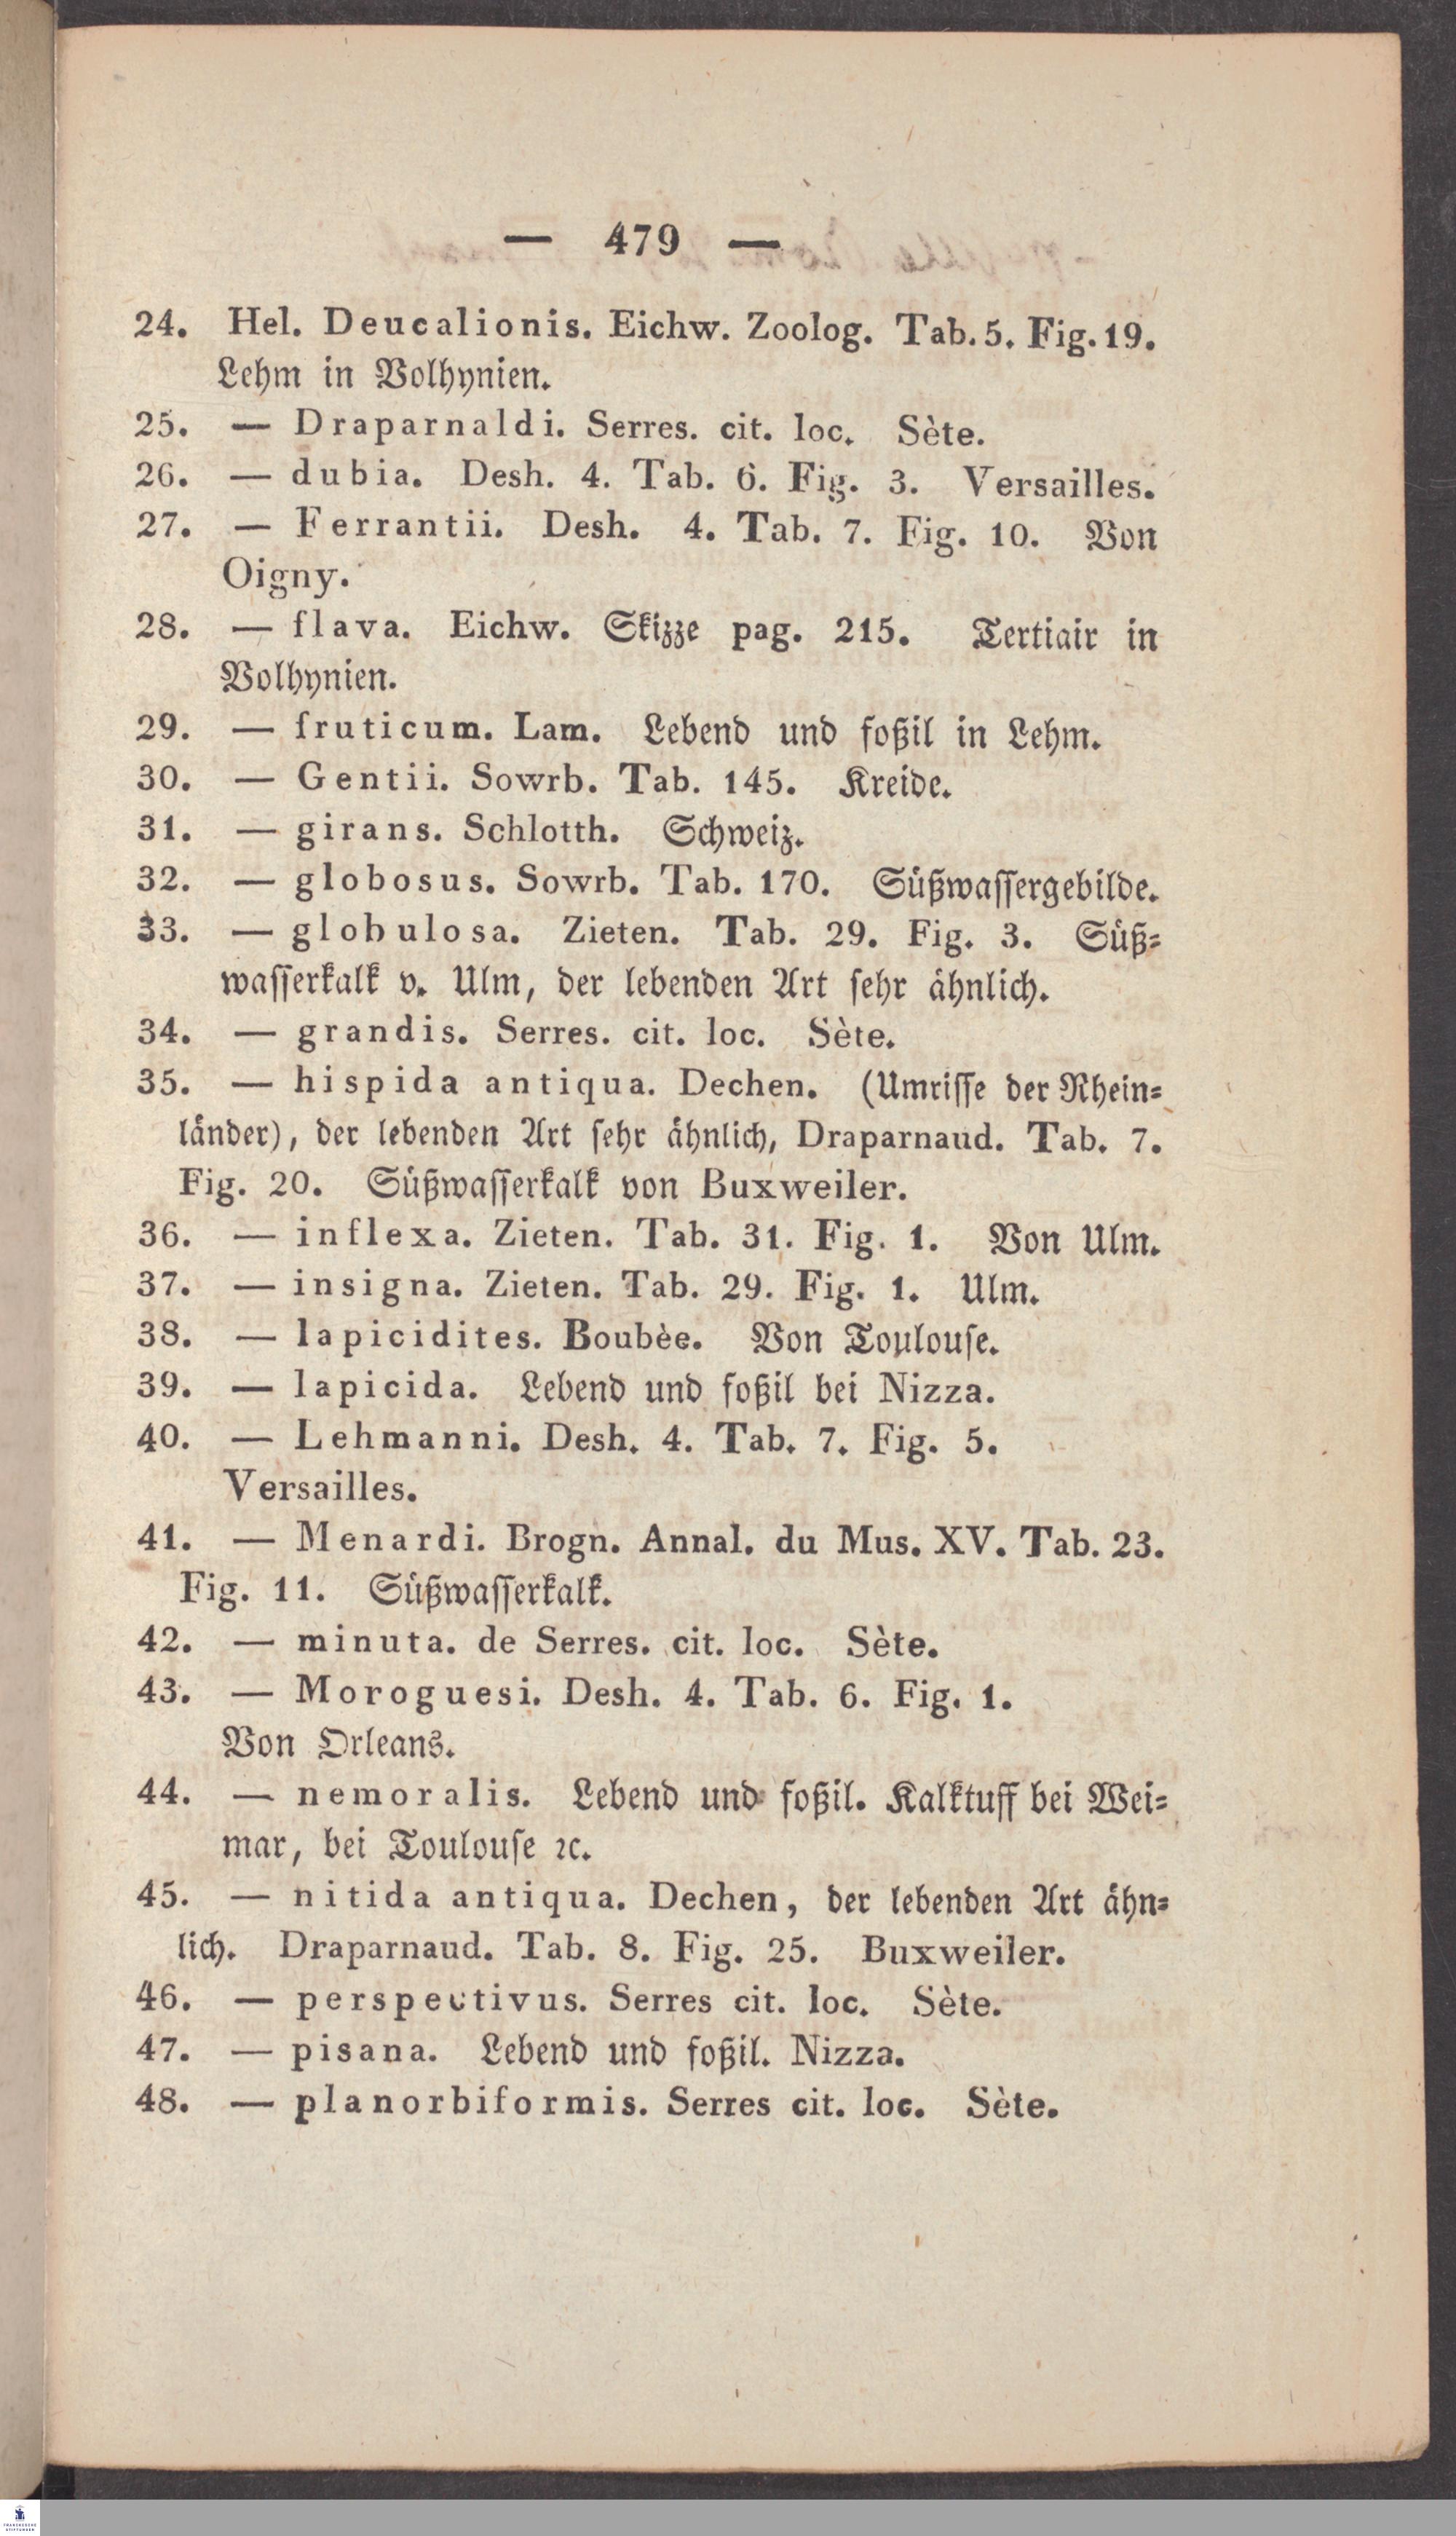 — 479 —
24. Hel. Deucalionis. Eichw. Zoolog. Tab. 5. Fig. 19.
Lehm in Volhynien.
25. — Draparnaldi. Serres. cit. loc. Sète.
26. — dubia. Desh. 4. Tab. 6. Fig. 3. Versailles.
27. — Ferrantii. Desh. 4. Tab. 7. Fig. 10. Von
Oigny.
28. — flava. Eichw. Skizze pag. 215. Tertiair in
Volhynien.
29. — fruticum. Lam. Lebend und foßil in Lehm.
30. — Gentii. Sowrb. Tab. 145. Kreide.
31. — girans. Schlotth. Schweiz.
32. — globosus. Sowrb. Tab. 170. Süßwassergebilde.
33. — globulosa. Zieten. Tab. 29. Fig. 3. Süß-
wasserkalk v. Ulm, der lebenden Art sehr ähnlich.
34. — grandis. Serres. cit. loc. Sète.
35. — hispida antiqua. Dechen. (Umrisse der Rhein-
länder), der lebenden Art sehr ähnlich, Draparnaud. Tab. 7.
Fig. 20. Süßwasserkalk von Buxweiler.
36. — inflexa. Zieten. Tab. 31. Fig. 1. Von Ulm.
37. — insigna. Zieten. Tab. 29. Fig. 1. Ulm.
38. — lapicidites. Boubèe. Von Toulouse.
39. — lapicida. Lebend und foßil bei Nizza.
40. — Lehmanni. Desh. 4. Tab. 7. Fig. 5.
Versailles.
41. — Menardi. Brogn. Annal. du Mus. XV. Tab. 23.
Fig. 11. Süßwasserkalk.
42. — minuta. de Serres. cit. loc. Sète.
43. — Moroguesi. Desh. 4. Tab. 6. Fig. 1.
Von Orleans.
44. — nemoralis. Lebend und foßil. Kalktuff bei Wei-
mar, bei Toulouse ꝛc.
45. — nitida antiqua. Dechen, der lebenden Art ähn-
lich. Draparnaud. Tab. 8. Fig. 25. Buxweiler.
46. — perspectivus. Serres cit. loc. Sète.
47. — pisana. Lebend und foßil. Nizza.
48. — planorbiformis. Serres cit. loc. Sète.